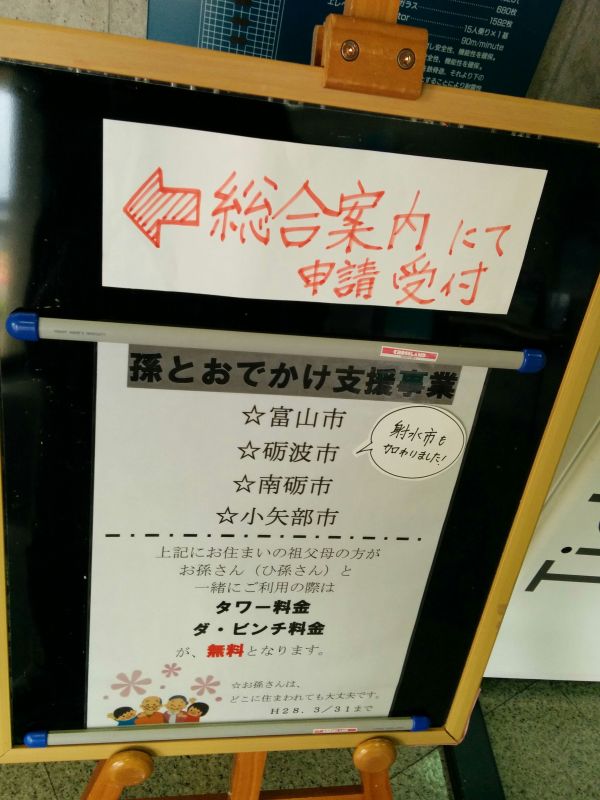 ガラス 680枚
1592枚
15人乗り×1基
90m/minute
←総合案内にて
申請受付
CROSSLAND
孫とおでかけ支援事業
☆富山市
☆砺波市
☆南砺市
☆小矢部市
射水市も
加わりました!
上記にお住まいの祖父母の方が
お孫さん(ひ孫さん)と
一緒にご利用の際は
タワー料金
ダ・ビンチ料金
が、無料となります。
☆お孫さんは、
どこに住まわれても大丈夫です。
H28.3/31まで